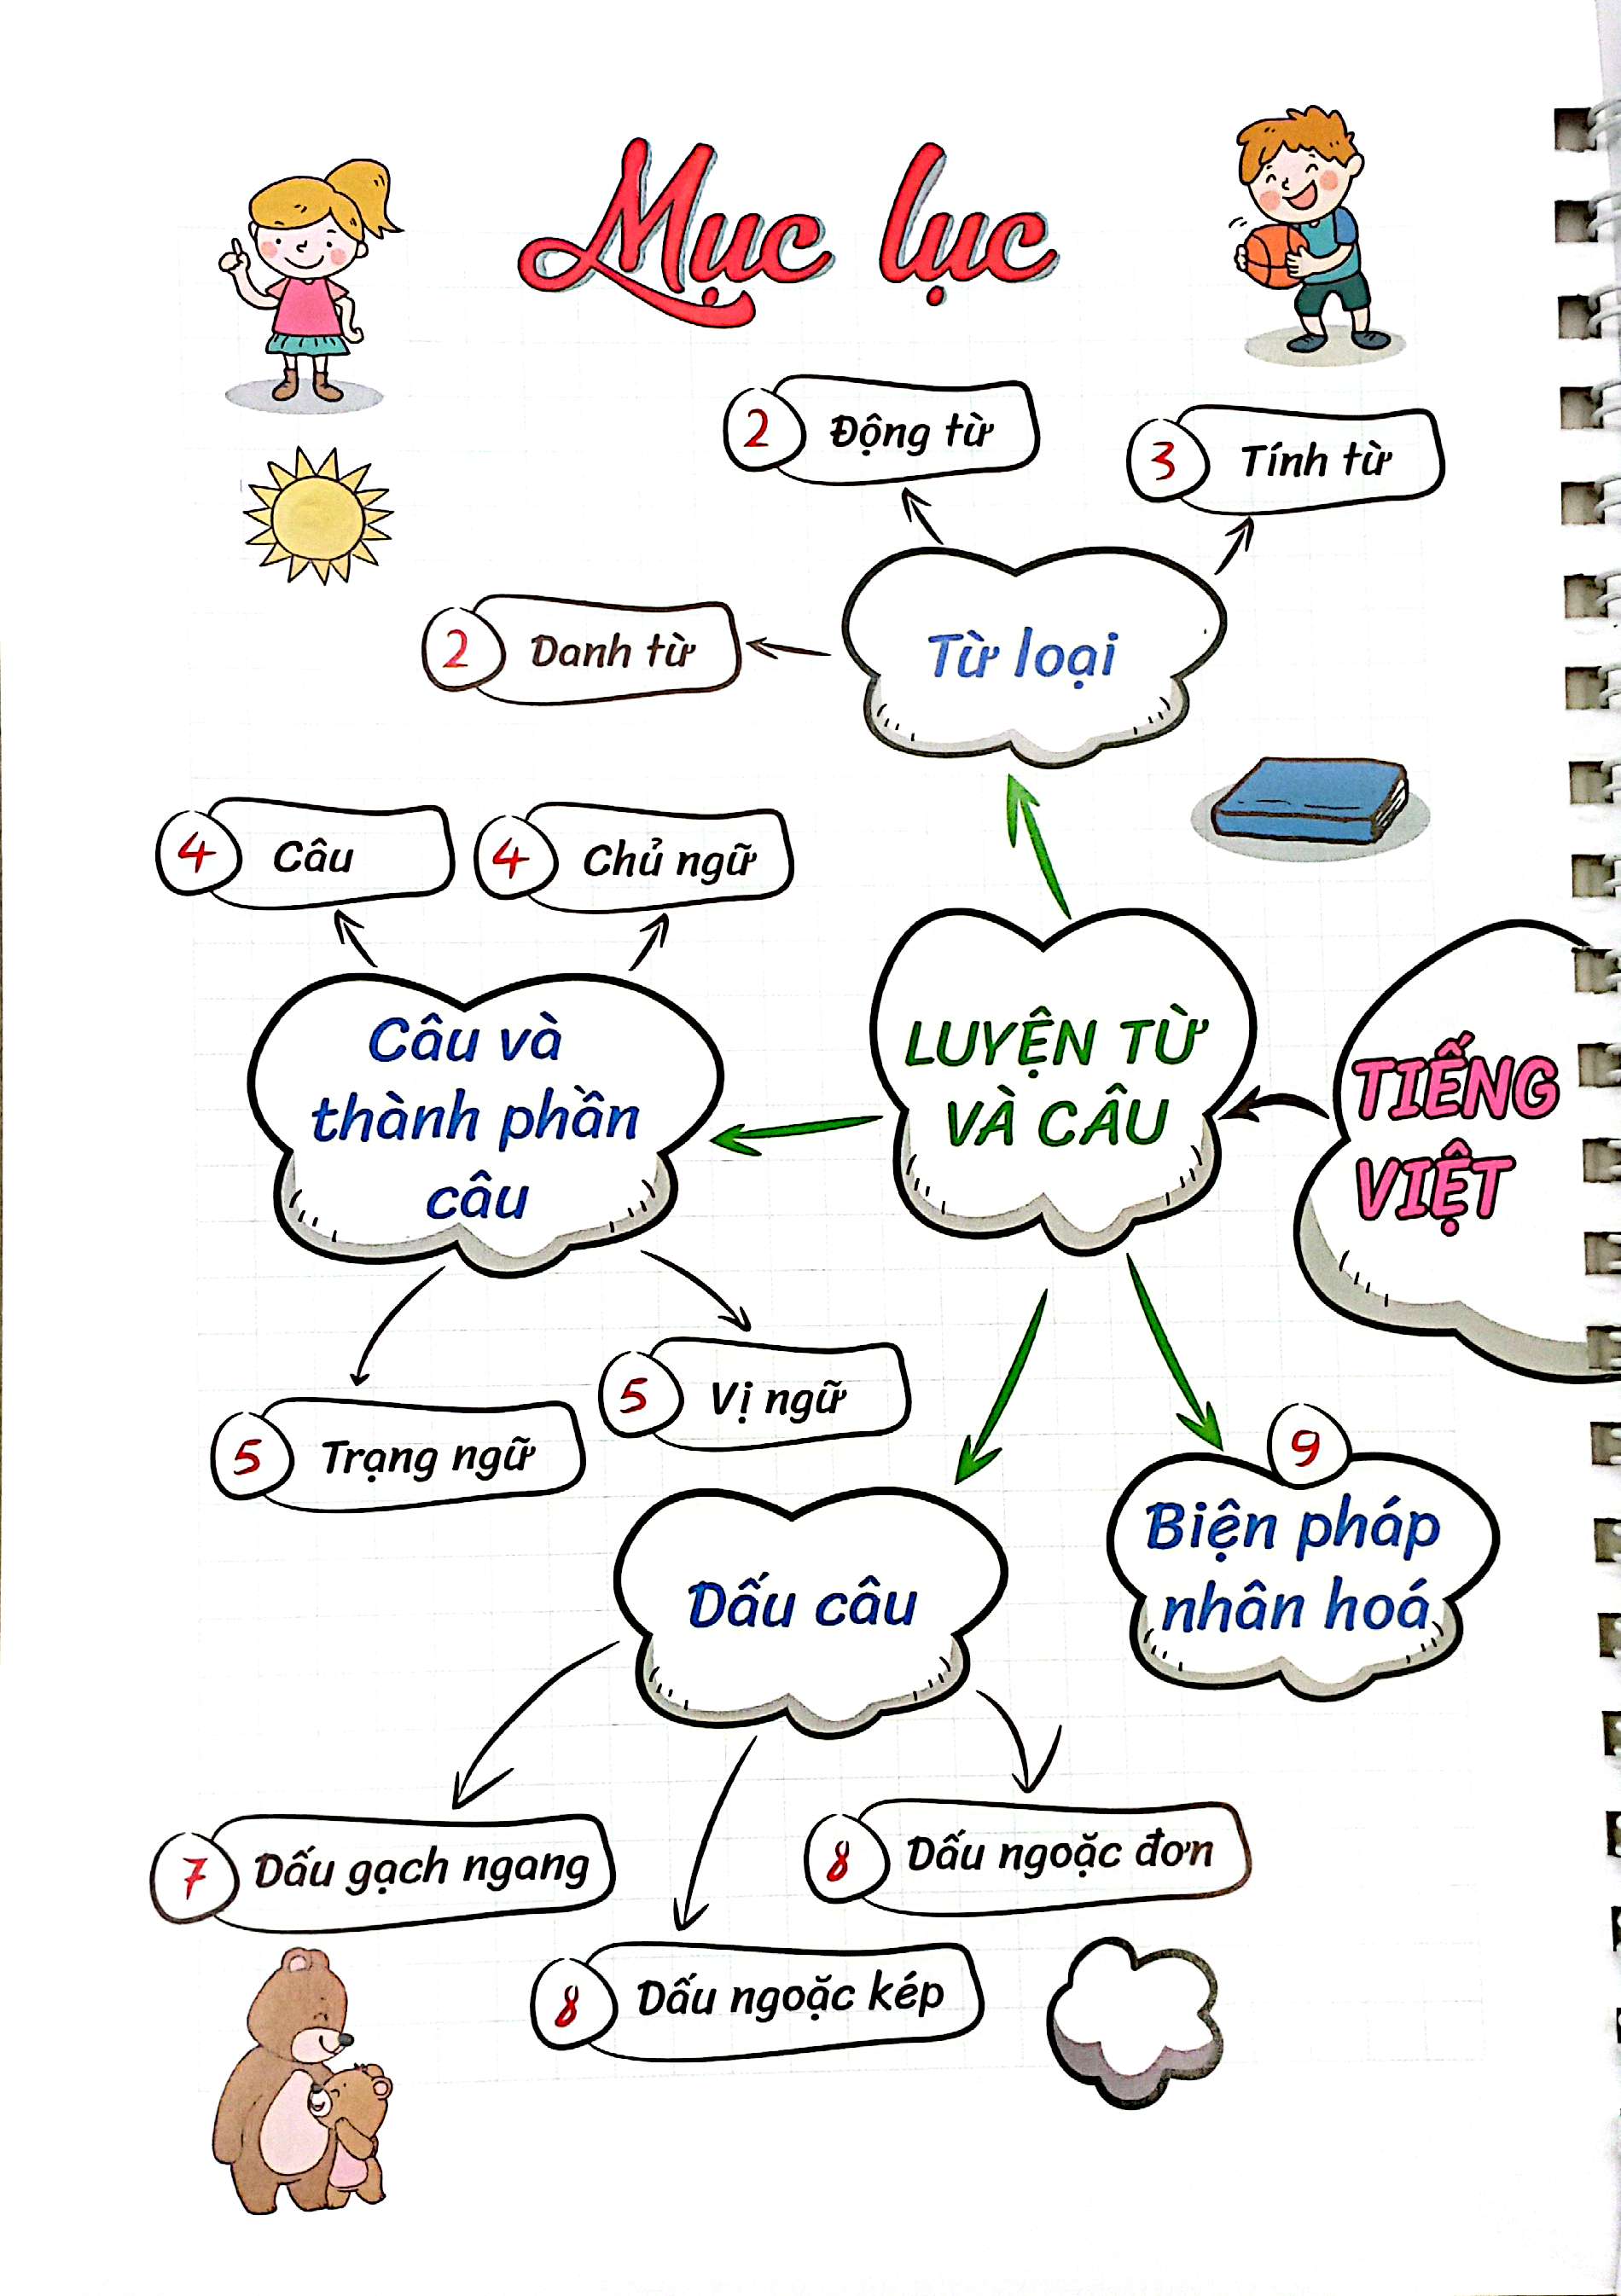 Mục lục
2 Động từ
3 Tính từ
2 Danh từ
Từ loại
4 Câu
4 Chủ ngữ
Câu và
thành phần
câu
LUYỆN TỪ
VÀ CÂU
TIẾNG
VIỆT
5 Vị ngữ
5 Trạng ngữ
9
Biện pháp
nhân hoá
Dấu câu
7 Dấu gạch ngang
8 Dấu ngoặc đơn
8 Dấu ngoặc kép